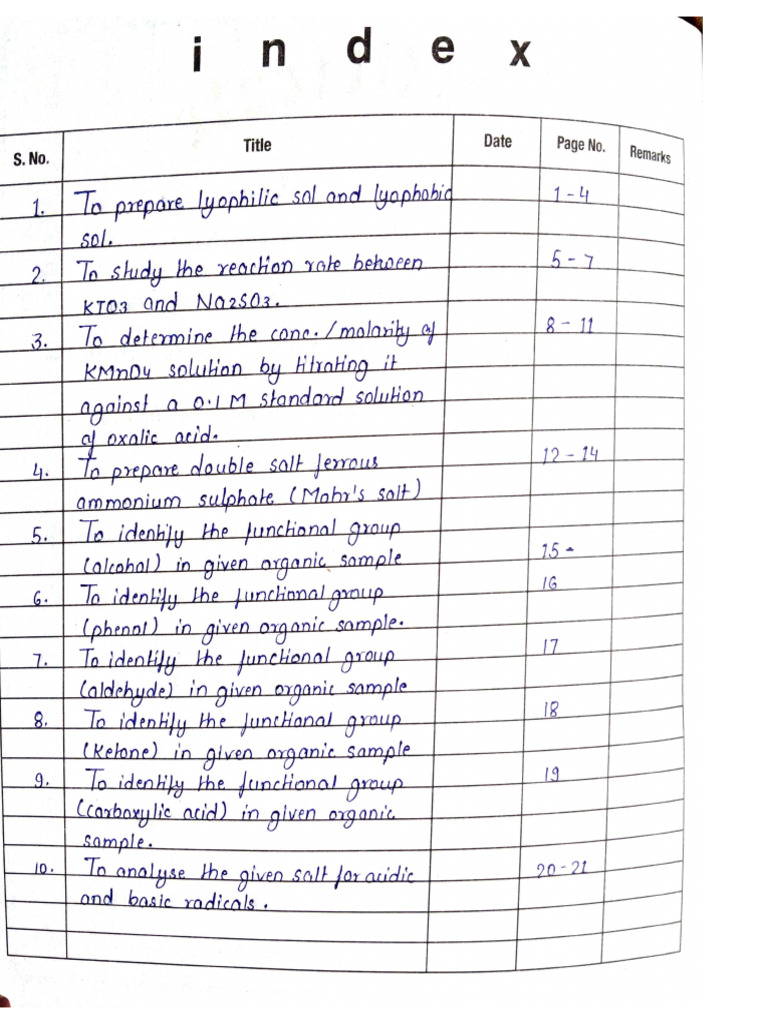 index
S. No. Title Date Page No. Remarks
1. To prepare lyophilic sol and lyophobic 1-4
sol.
2. To study the reaction rate between 5-7
KIO3 and Na2SO3.
3. To determine the conc./molarity of 8-11
KMnO4 solution by titrating it
against a 0.1 M standard solution
of oxalic acid.
4. To prepare double salt ferrous 12-14
ammonium sulphate (Mohr's salt)
5. To identify the functional group
(alcohol) in given organic sample 15-
6. To identify the functional group 16
(phenol) in given organic sample.
7. To identify the functional group 17
(aldehyde) in given organic sample
8. To identify the functional group 18
(Ketone) in given organic sample
9. To identify the functional group 19
(carboxylic acid) in given organic
sample.
10. To analyse the given salt for acidic 20-21
and basic radicals.